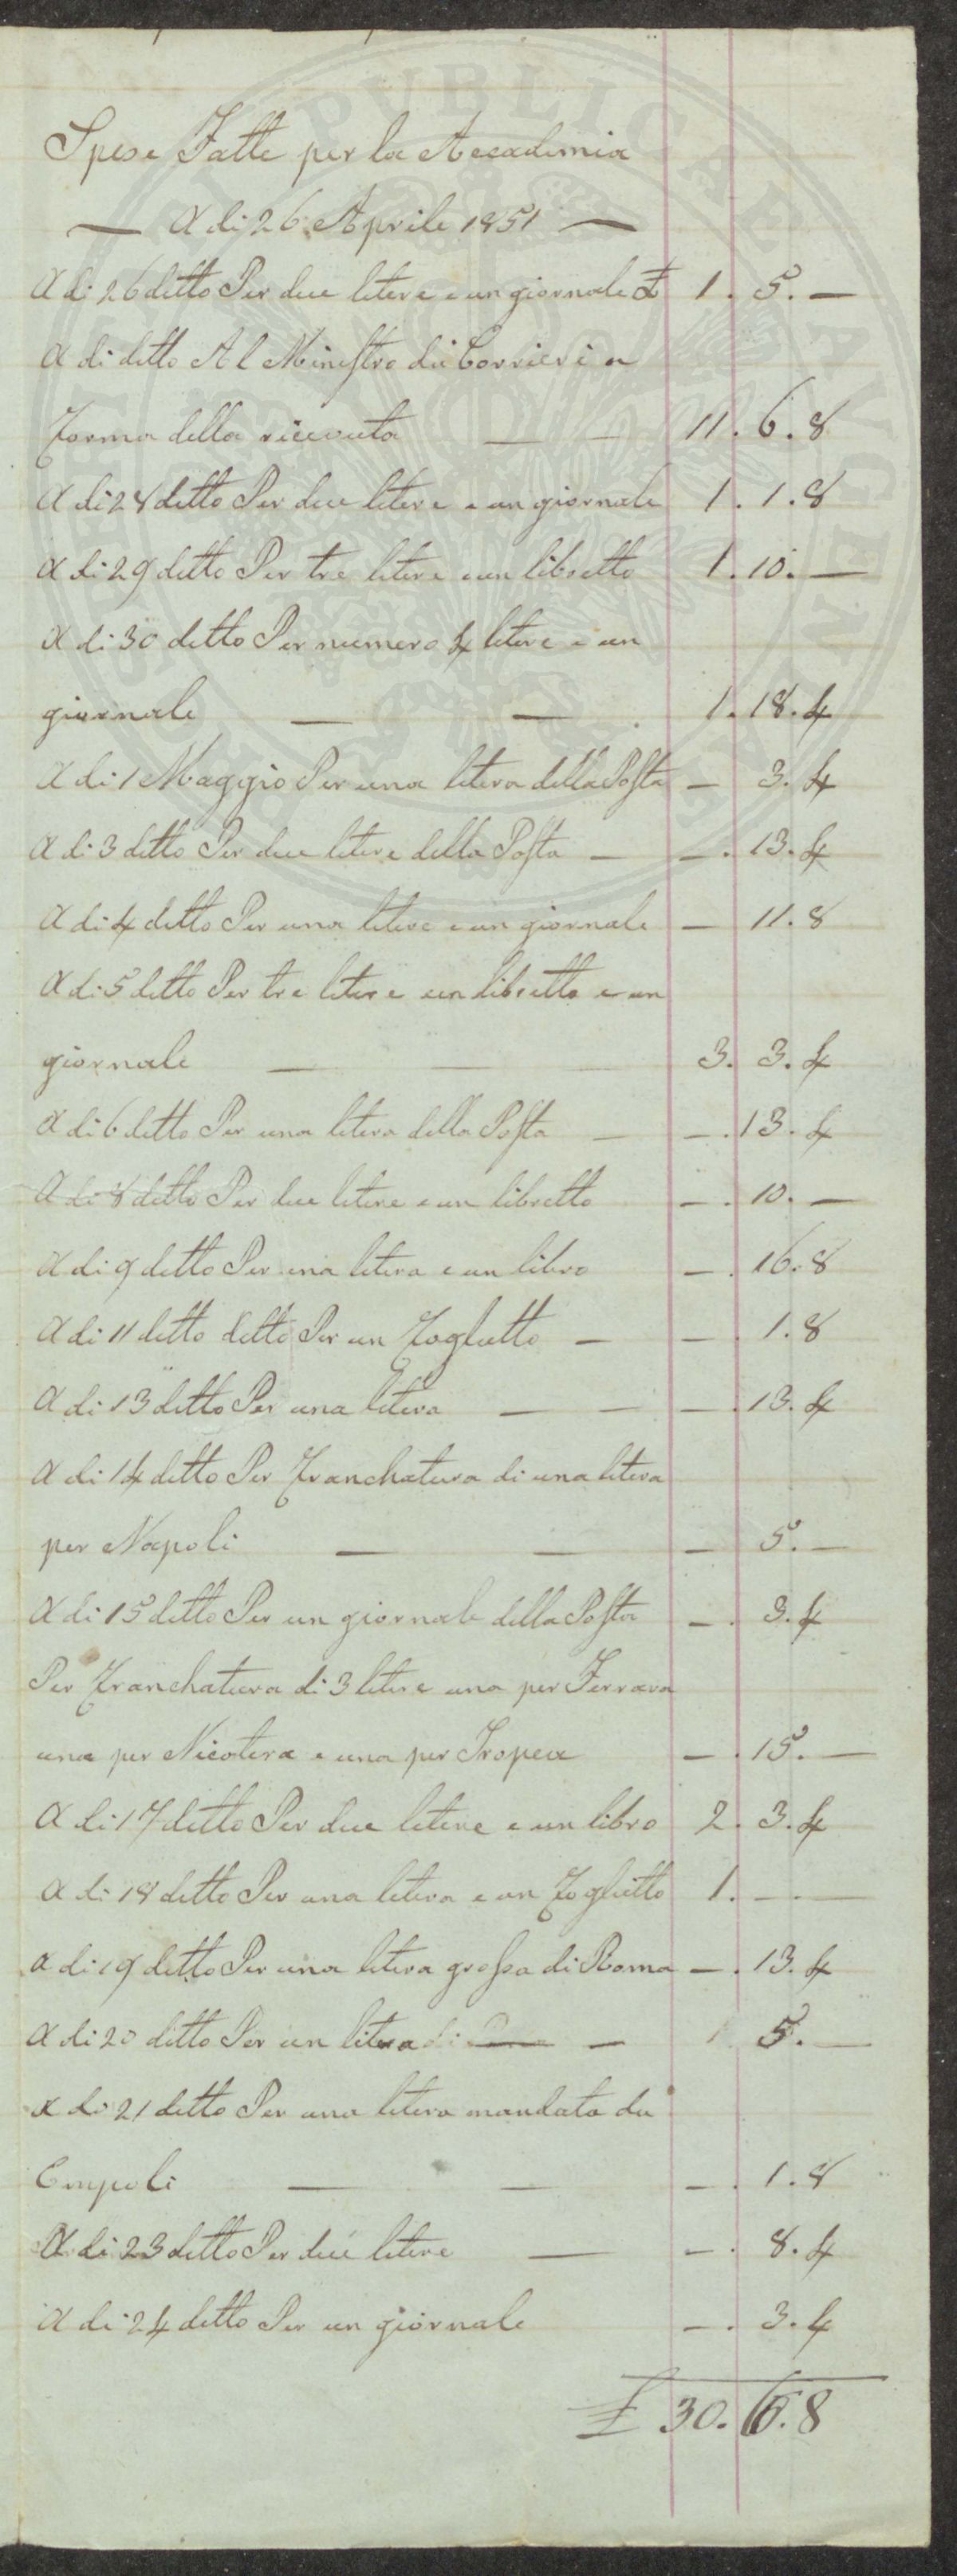 Spese Fatte per la Accademia
— A di 26 Aprile 1851 —
A di 26 ditto Per due litere e un giornale £ 1. 5. —
A di ditto Al Ministro dei Corrieri a
forma della ricevuta — — 11. 6. 8
A di 28 ditto Per due litere e un giornale 1. 1. 8
A di 29 ditto Per tre litere e un libretto 1. 10. —
A di 30 ditto Per numero 4 litere e un
giornale — — 1. 18. 4
A di 1 Maggio Per una litera della Posta — 3. 4
A di 3 ditto Per due litere della Posta — —. 13. 4
A di 4 ditto Per una litere e un giornale — 11. 8
A di 5 ditto Per tre litere e un libretto e un
giornale — — 3. 3. 4
A di 6 ditto Per una litera della Posta — —. 13. 4
A di 8 ditto Per due litere e un libretto —. 10. —
A di 9 ditto Per una litera e un libro —. 16. 8
A di 11 ditto ditto Per un foglietto — —. 1. 8
A di 13 ditto Per una litera — — —. 13. 4
A di 14 ditto Per franchatura di una litera
per Napoli — — — 5. —
A di 15 ditto Per un giornale della Posta —. 3. 4
Per franchatura di 3 litere una per Ferrara
una per Nicotera e una per Tropea —. 15. —
A di 17 ditto Per due litere e un libro 2. 3. 4
A di 18 ditto Per una litera e un foglietto 1. — —
A di 19 ditto Per una litera grossa di Roma —. 13. 4
A di 20 ditto Per un litera di — — 5. —
A di 21 ditto Per una litera mandata da
Empoli — — —. 1. 8
A di 23 ditto Per due litere — —. 8. 4
A di 24 ditto Per un giornale —. 3. 4
£ 30. 6. 8
PUBLICAE